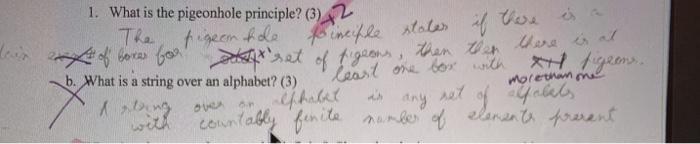 1. What is the pigeonhole principle? (3) +2
The pigeon hole principle states if there is a
# of boxes for set of pigeons, then there is at
least one box with more than one pigeons.
b. What is a string over an alphabet? (3)
A string over an alphabet is any set of alfabets
with countably finite number of elements present